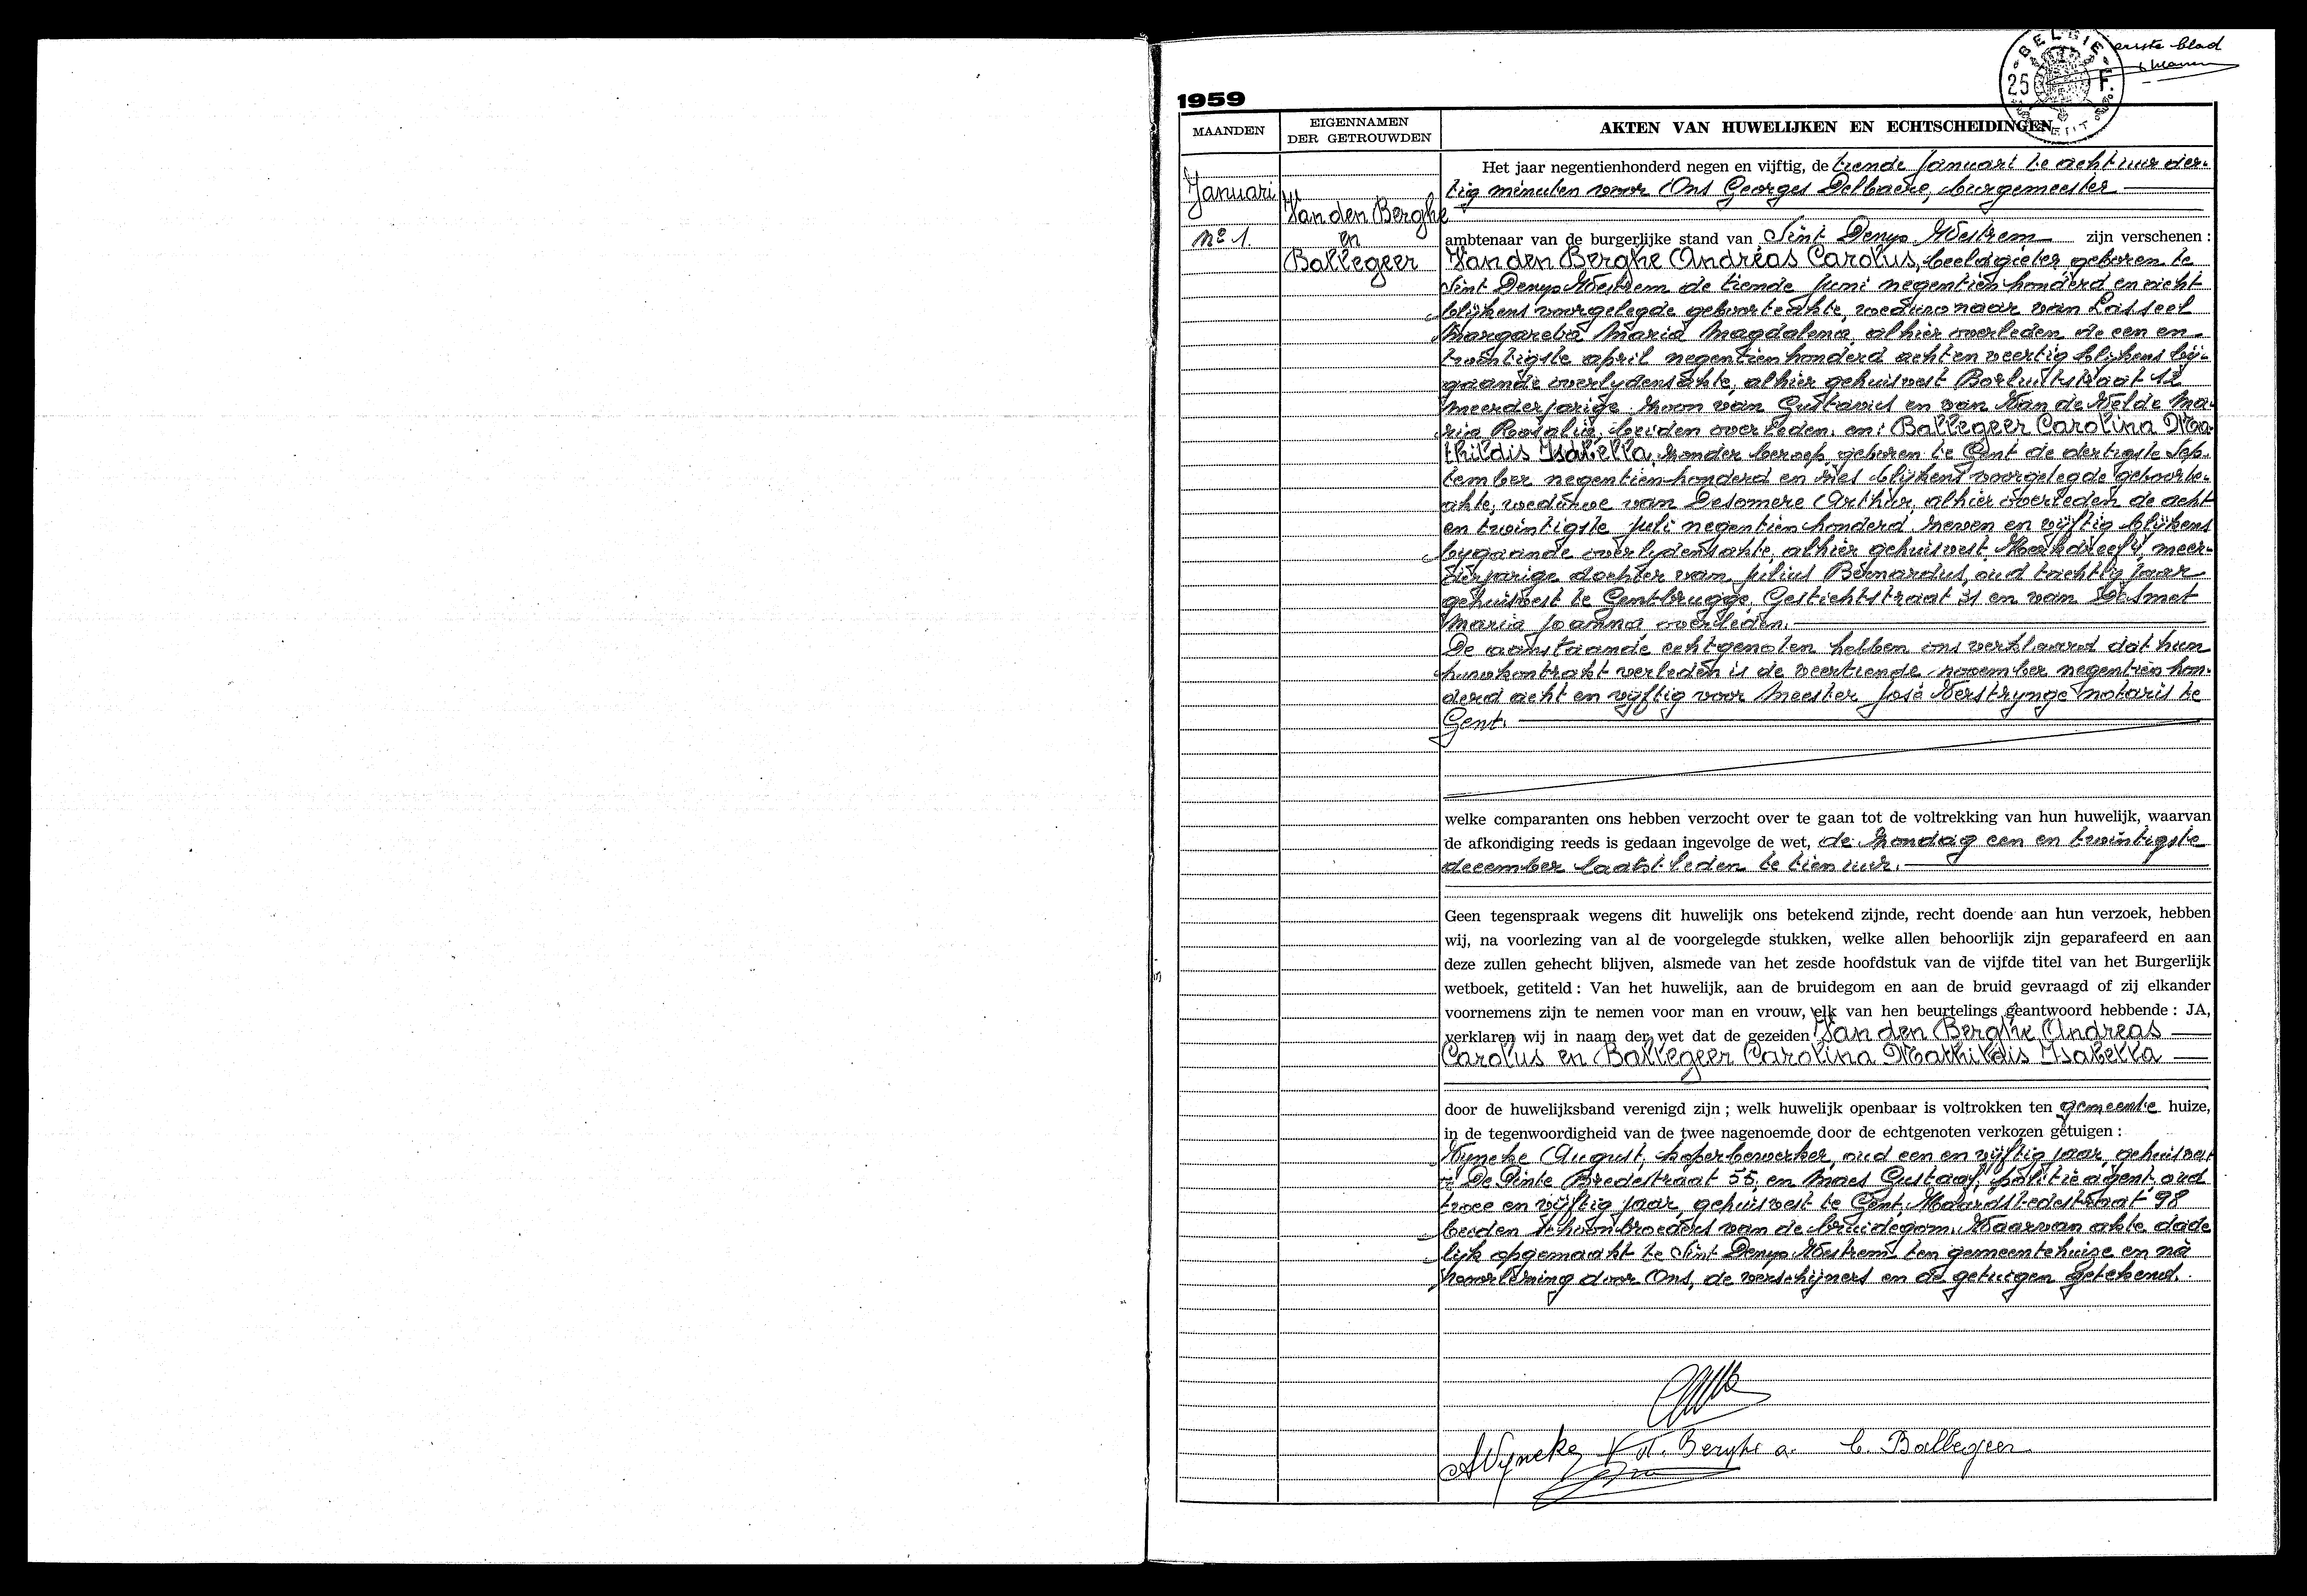 eerste blad
BELGIE
25 F.
1959
MAANDEN
EIGENNAMEN
DER GETROUWDEN
AKTEN VAN HUWELIJKEN EN ECHTSCHEIDINGEN
Januari
Nº 1.
Van den Berghe
en
Ballegeer
Het jaar negentienhonderd negen en vijftig, de tiende Januari te acht uur der-
tig minuten voor Ons Georges Delbaere, burgemeester
ambtenaar van de burgerlijke stand van Sint Denys Westrem zijn verschenen :
Van den Berghe Andreas Carolus, beeldgieter, geboren te
Sint Denys Westrem de tiende Juni negentienhonderd en acht
blijkens voorgelegde geboorteakte, weduwnaar van Lasseel
Margareta Maria Magdalena, alhier overleden de een en
twintigste april negentienhonderd acht en veertig blijkens bij-
gaande overlydensakte, alhier gehuisvest Borluutstraat 12
meerderjarige zoon van Gustavus en van Van de Velde Ma-
ria Rosalia, beiden overleden. en: Ballegeer Carolina Ma-
thildis Isabella, zonder beroep, geboren te Gent de dertigste Sep-
tember negentienhonderd en zes blijkens voorgelegde geboorte-
akte, weduwe van Desomere Arthur, alhier overleden de acht
en twintigste Juli negentienhonderd zeven en vijftig blijkens
bygaande overlydensakte, alhier gehuisvest Kerkdreef 4, meer-
derjarige dochter van Julius Bernardus, oud tachtig jaar
gehuisvest te Gentbrugge, Gestichtstraat 31 en van Desmet
Maria Joanna overleden.
De aanstaande echtgenoten hebben ons verklaard dat hun
huwkontrakt verleden is de veertiende november negentien hon-
derd acht en vijftig voor Meester José Verstrynge notaris te
Gent.
welke comparanten ons hebben verzocht over te gaan tot de voltrekking van hun huwelijk, waarvan
de afkondiging reeds is gedaan ingevolge de wet, de zondag een en twintigste
december laatst leden te tien uur.
Geen tegenspraak wegens dit huwelijk ons betekend zijnde, recht doende aan hun verzoek, hebben
wij, na voorlezing van al de voorgelegde stukken, welke allen behoorlijk zijn geparafeerd en aan
deze zullen gehecht blijven, alsmede van het zesde hoofdstuk van de vijfde titel van het Burgerlijk
wetboek, getiteld : Van het huwelijk, aan de bruidegom en aan de bruid gevraagd of zij elkander
voornemens zijn te nemen voor man en vrouw, elk van hen beurtelings geantwoord hebbende : JA,
verklaren wij in naam der wet dat de gezeiden Van den Berghe Andreas
Carolus en Ballegeer Carolina Mathildis Isabella
door de huwelijksband verenigd zijn ; welk huwelijk openbaar is voltrokken ten gemeente huize,
in de tegenwoordigheid van de twee nagenoemde door de echtgenoten verkozen getuigen :
Vyncke August, koperbewerker, oud een en vijftig jaar, gehuisvest
te De Pinte Bredestraat 55, en Maes Gustaaf, politieagent, oud
twee en vijftig jaar, gehuisvest te Gent, Maardstedestraat 98
beiden schoonbroeders van de bruidegom. Waarvan akte dade
lijk opgemaakt te Sint Denys Westrem ten gemeentehuize en na
voorlezing door Ons, de verschijners en de getuigen getekend.
AVyncke V. d. Berghe a. C. Ballegeer